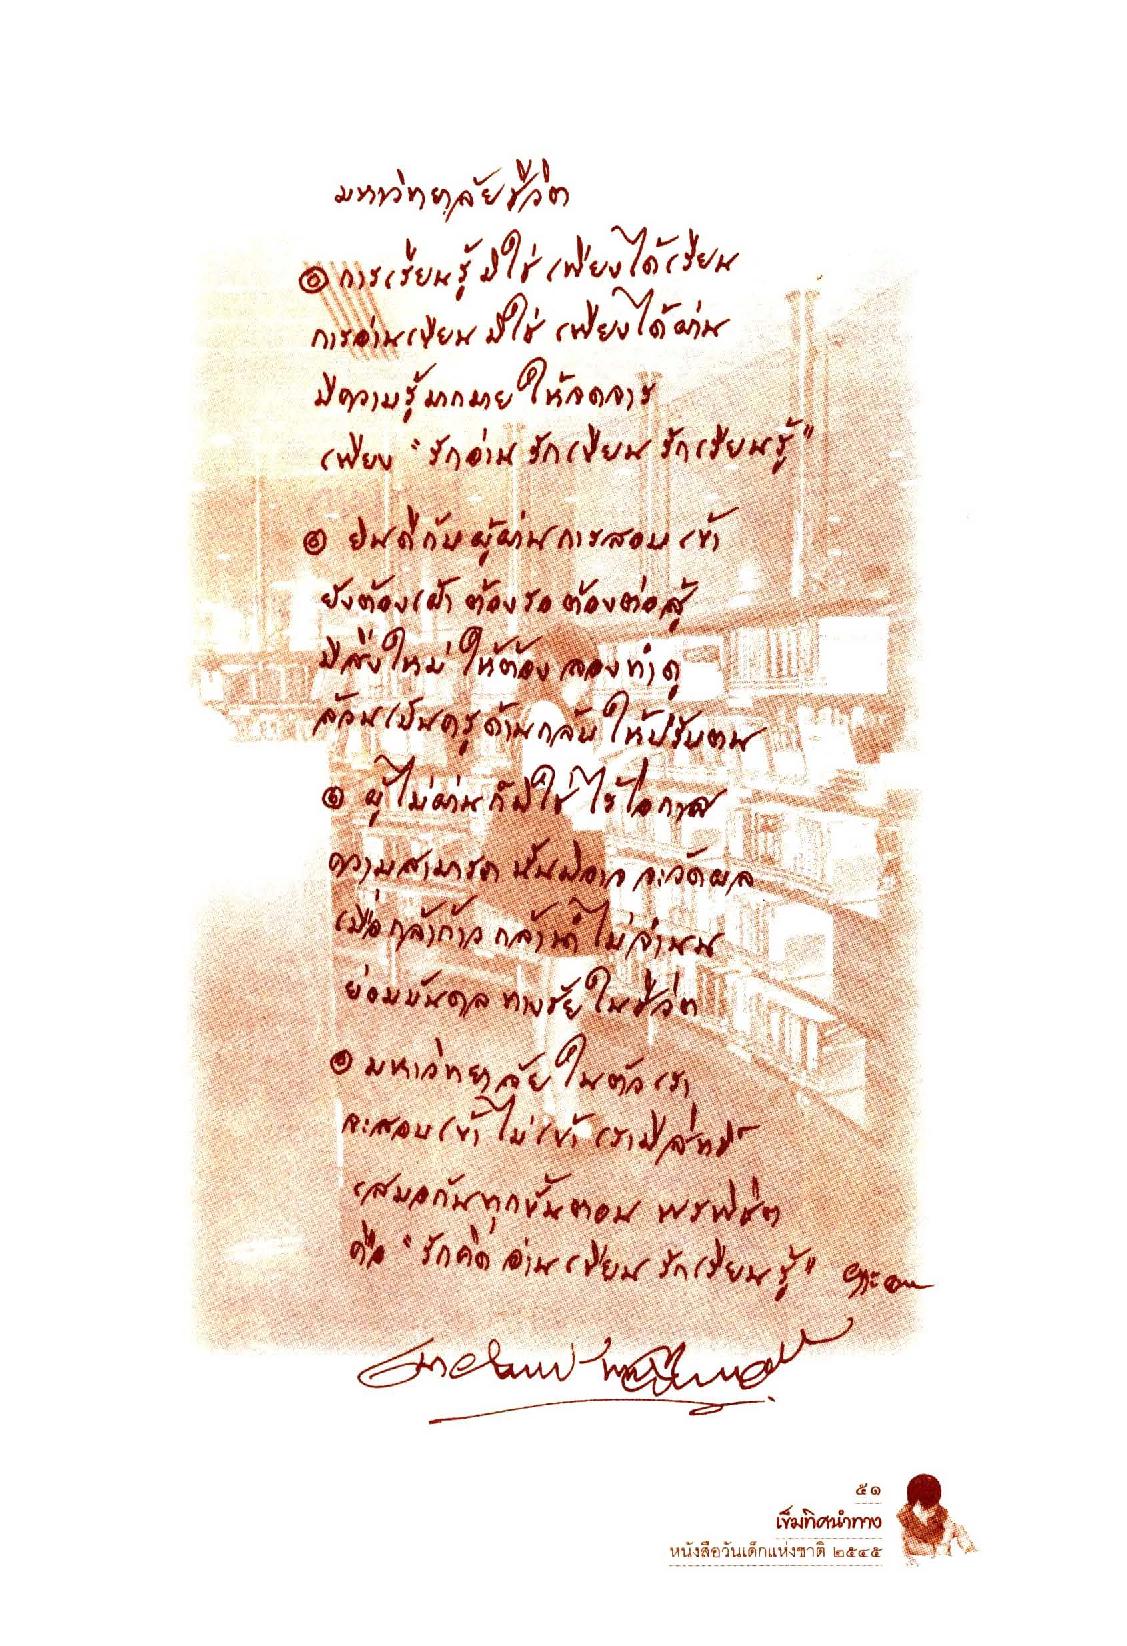 มหาวิทยาลัยชีวิต
๏ การเรียนรู้ มิใช่ เพียงได้เรียน
การอ่านเขียน มิใช่ เพียงได้ผ่าน
มีความรู้มากมาย ให้จดจาร
เพียง "รักอ่าน รักเขียน รักเรียนรู้"
๏ ยินดีกับผู้ผ่านการสอบเข้า
ยังต้องเฝ้า ต้องรอ ต้องต่อสู้
มีสิ่งใหม่ ให้ต้อง ลองทำดู
ล้วนเป็นครูด้านกลับ ให้ปรับตน
๏ ผู้ไม่ผ่าน ก็มิใช่ ไร้โอกาส
ความสามารถ นั้นมิอาจ จะวัดผล
เมื่อกล้าก้าว กล้านำ ไม่จำนน
ย่อมบันดล ทางชัย ในชีวิต
๏ มหาวิทยาลัย ในตัวเรา
จะสอบเข้า ไม่เข้า เรามีสิทธิ์
เสมอกันทุกขั้นตอน
คือ "รักคิด อ่านเขียน รักเรียนรู้"
๕๑
เข็มทิศนำทาง
หนังสือวันเด็กแห่งชาติ ๒๕๔๕